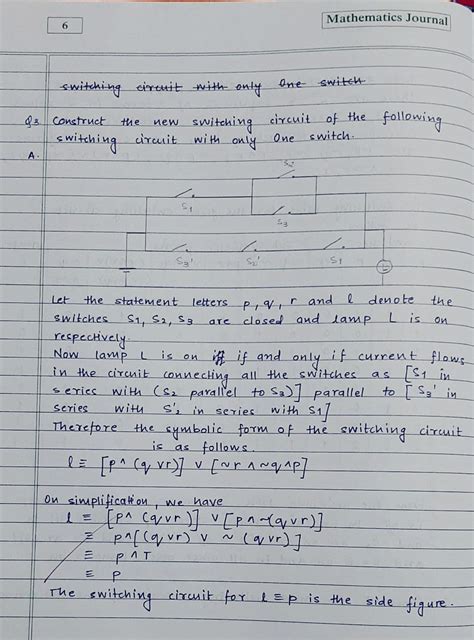 6
Mathematics Journal
switching circuit with only One switch
Q2 Construct the new switching circuit of the following
switching circuit with only One switch.
A.
S2
S1
S3
S3' S2' S1
L
Let the statement letters p, q, r and l denote the
switches S1, S2, S3 are closed and lamp L is on
respectively.
Now lamp L is on iff if and only if current flows
in the circuit connecting all the switches as [S1 in
series with (S2 parallel to S3)] parallel to [S3' in
series with S'2 in series with S1]
Therefore the symbolic form of the switching circuit
is as follows.
l ≡ [p ∧ (q ∨ r)] ∨ [~r ∧ ~q ∧ p]
On simplification, we have
l ≡ [p ∧ (q ∨ r)] ∨ [p ∧ ~(q ∨ r)]
≡ p ∧ [(q ∨ r) ∨ ~ (q ∨ r)]
≡ p ∧ T
≡ p
The switching circuit for l ≡ p is the side figure.